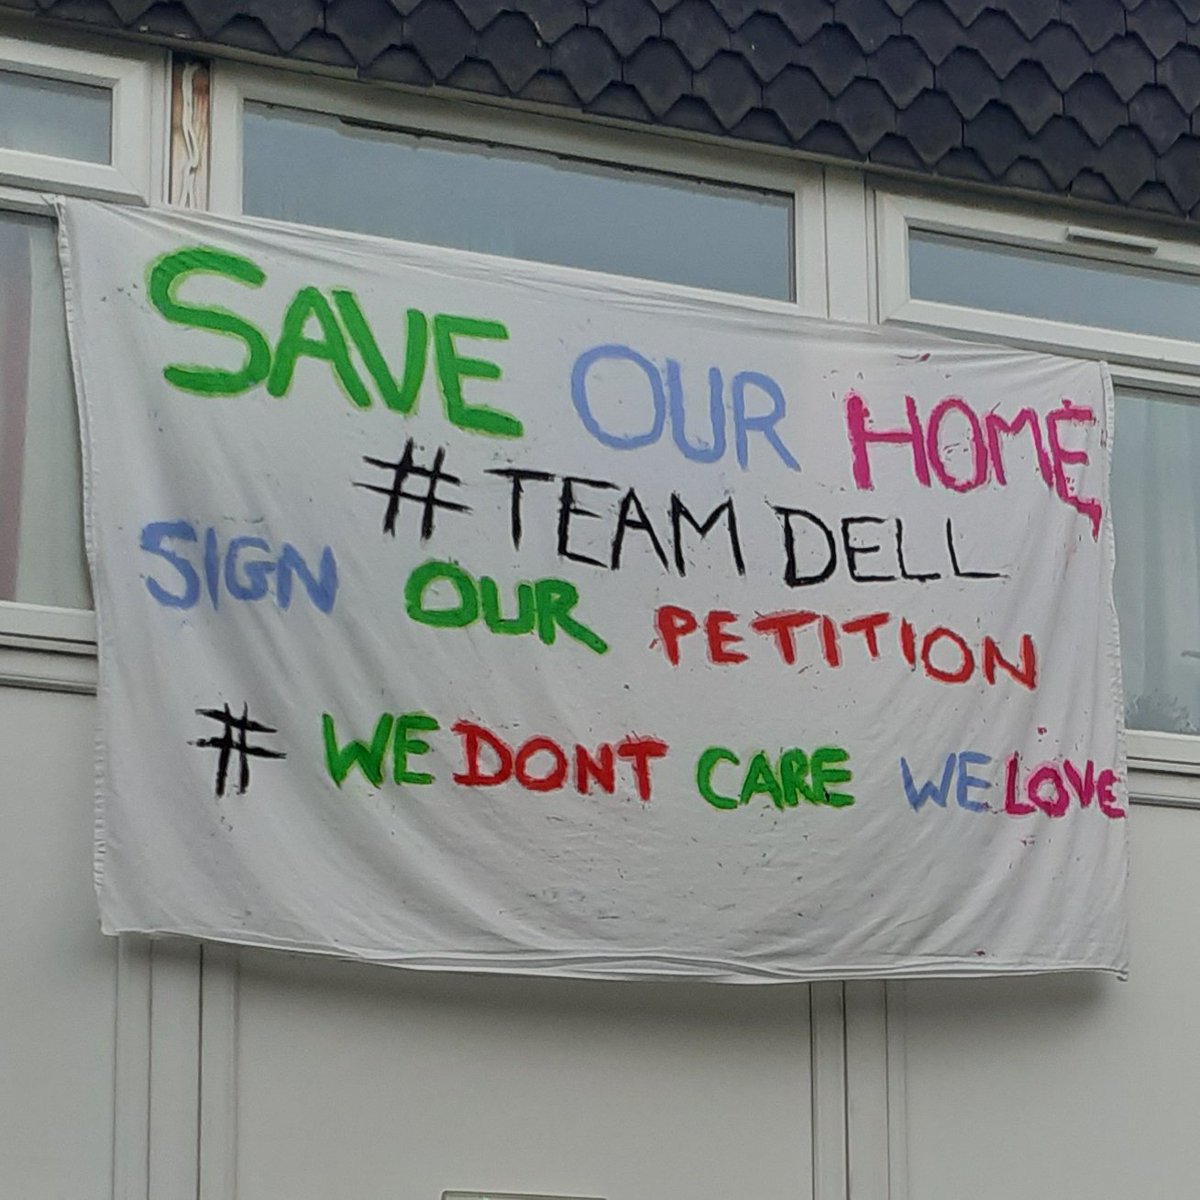 SAVE OUR HOME
#TEAM DELL
SIGN OUR PETITION
# WE DONT CARE WE LOVE